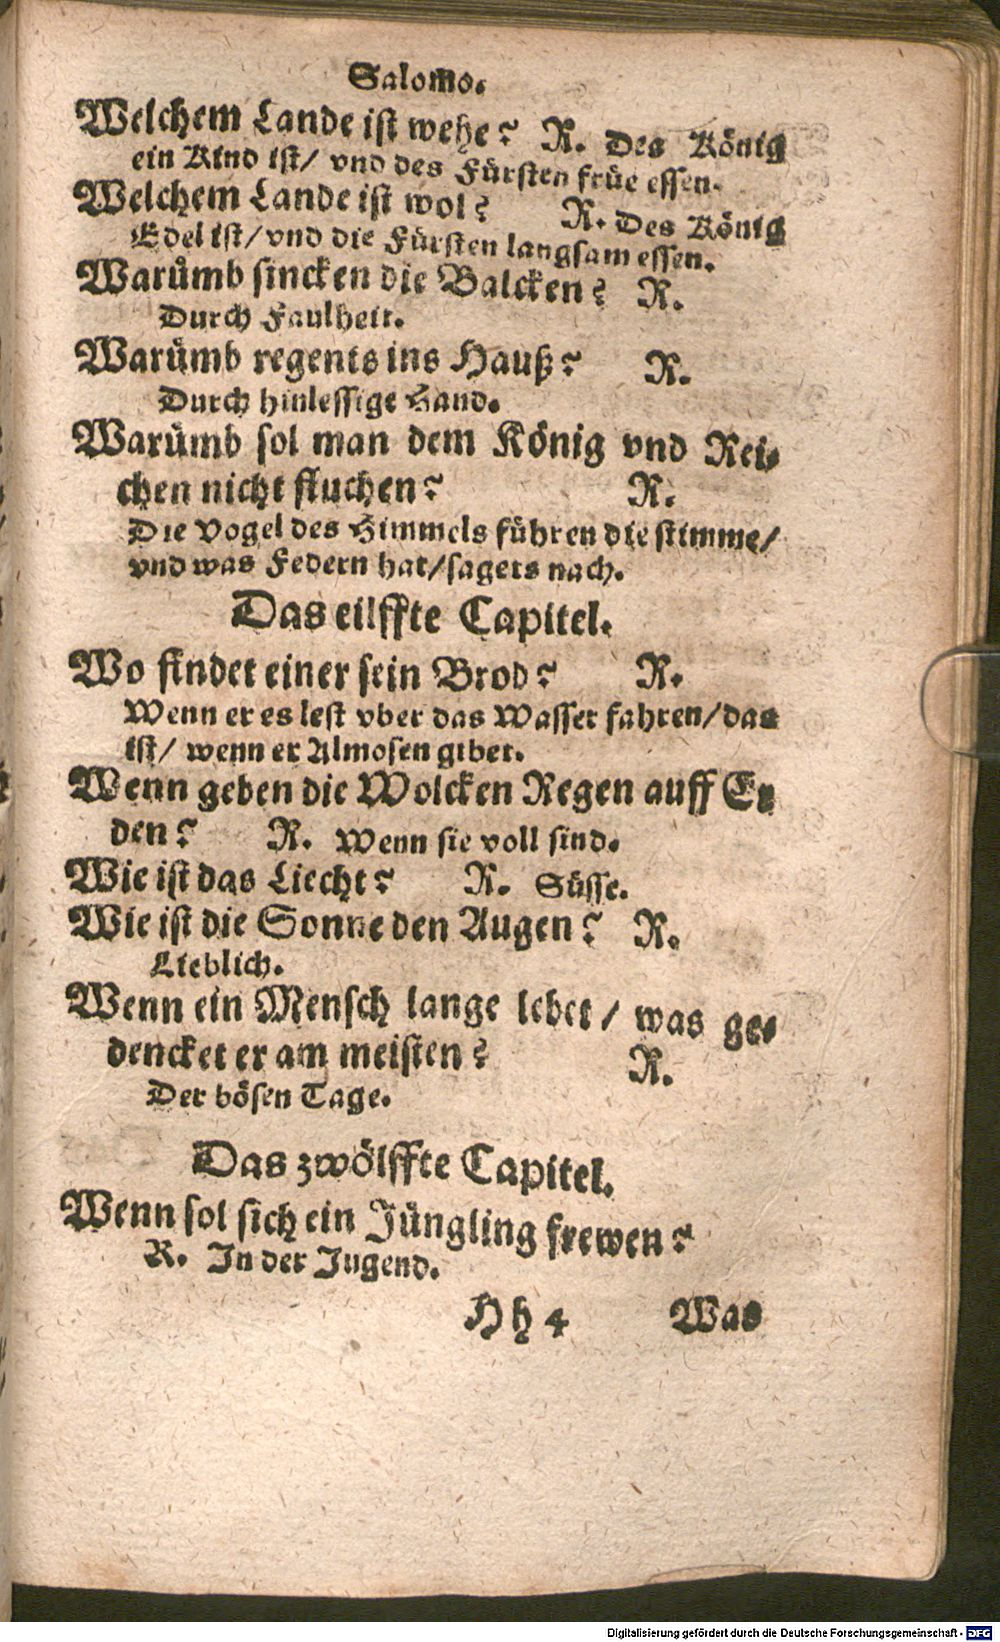 Salomo.
Welchem Lande ist wehe? R. Des König
ein Kind ist/ vnd des Fürsten früe essen.
Welchem Lande ist wol? R. Des König
Edel ist/ vnd die Fürsten langsam essen.
Warümb sincken die Balcken? R.
Durch Faulheit.
Warümb regents ins Hauß? R.
Durch hinlessige Hand.
Warümb sol man dem König vnd Rei-
chen nicht fluchen? R.
Die Vogel des Himmels führen die stimme/
vnd was Federn hat/ sagets nach.
Das eilffte Capitel.
Wo findet einer sein Brod? R.
Wenn er es lest vber das Wasser fahren/ das
ist/ wenn er Almosen gibet.
Wenn geben die Wolcken Regen auff Er
den? R. Wenn sie voll sind.
Wie ist das Liecht? R. Süsse.
Wie ist die Sonne den Augen? R.
Lieblich.
Wenn ein Mensch lange lebet/ was ge-
dencket er am meisten? R.
Der bösen Tage.
Das zwölffte Capitel.
Wenn sol sich ein Jüngling frewen?
R. In der Jugend.
Hh 4 Was
Digitalisierung gefördert durch die Deutsche Forschungsgemeinschaft - DFG